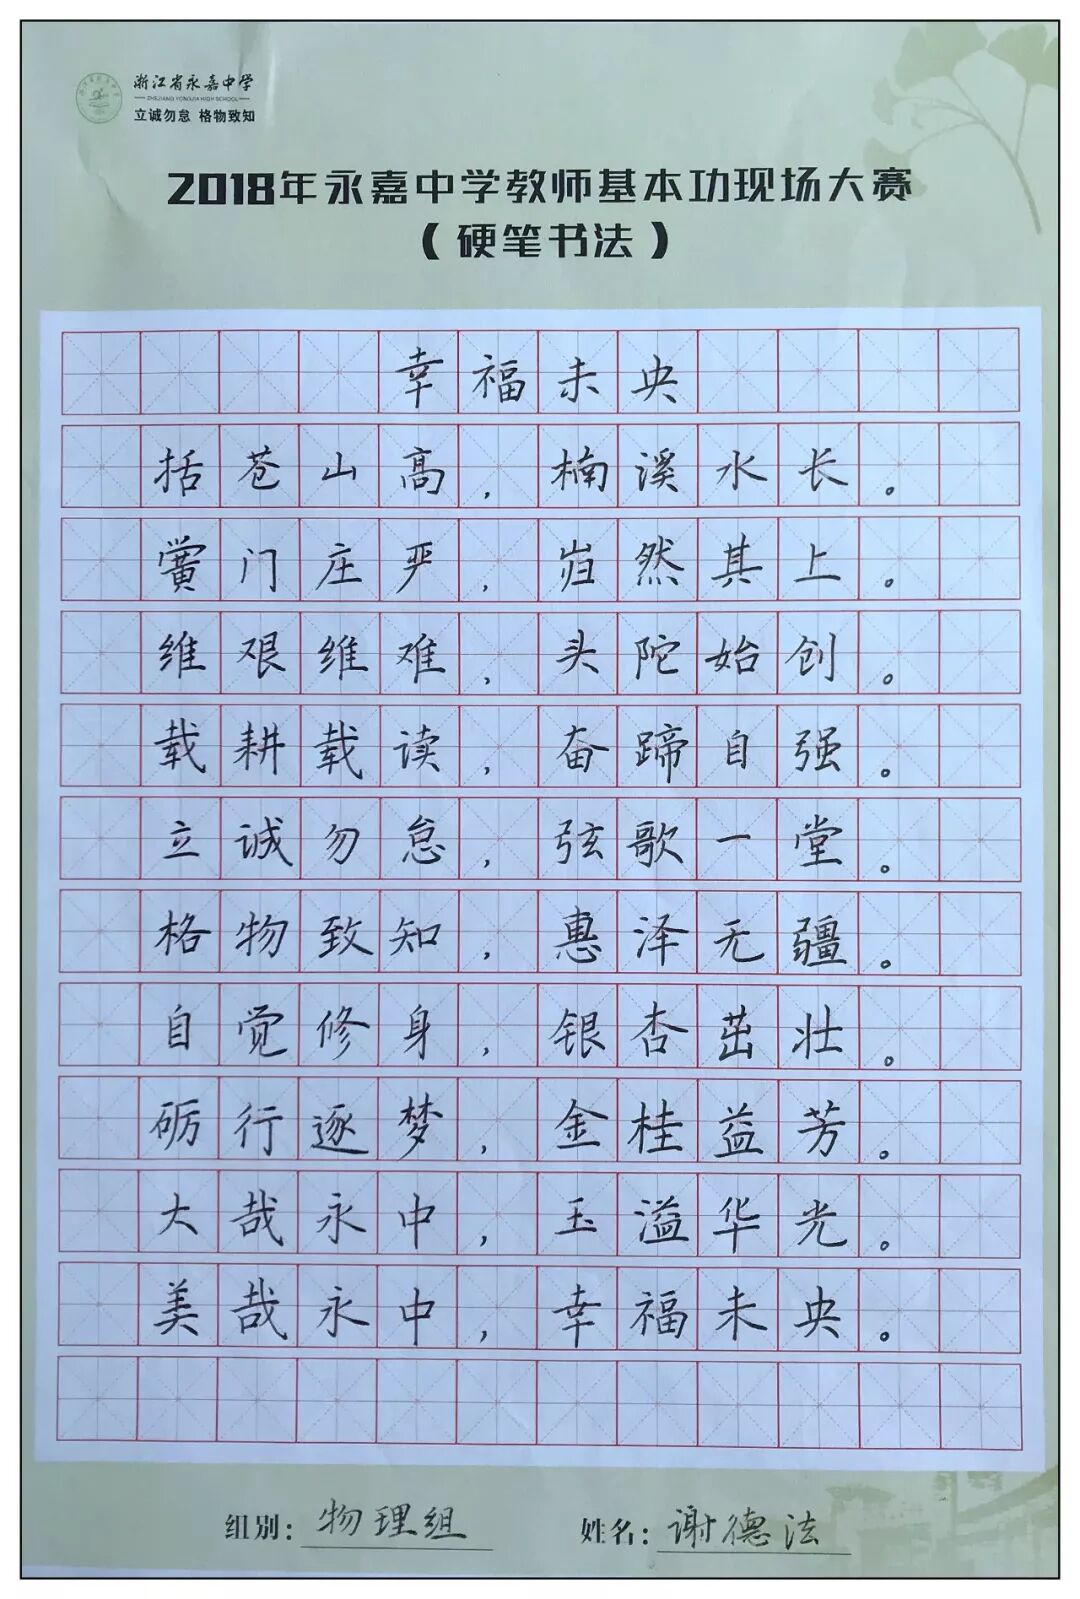 浙江省永嘉中学
ZHEJIANG YONGJIA HIGH SCHOOL
立诚勿怠 格物致知
2018年永嘉中学教师基本功现场大赛
（硬笔书法）
幸福未央
括苍山高，楠溪水长。
黉门庄严，岿然其上。
维艰维难，头陀始创。
载耕载读，奋蹄自强。
立诚勿怠，弦歌一堂。
格物致知，惠泽无疆。
自觉修身，银杏茁壮。
砺行逐梦，金桂益芳。
大哉永中，玉溢华光。
美哉永中，幸福未央。
组别：物理组 姓名：谢德法